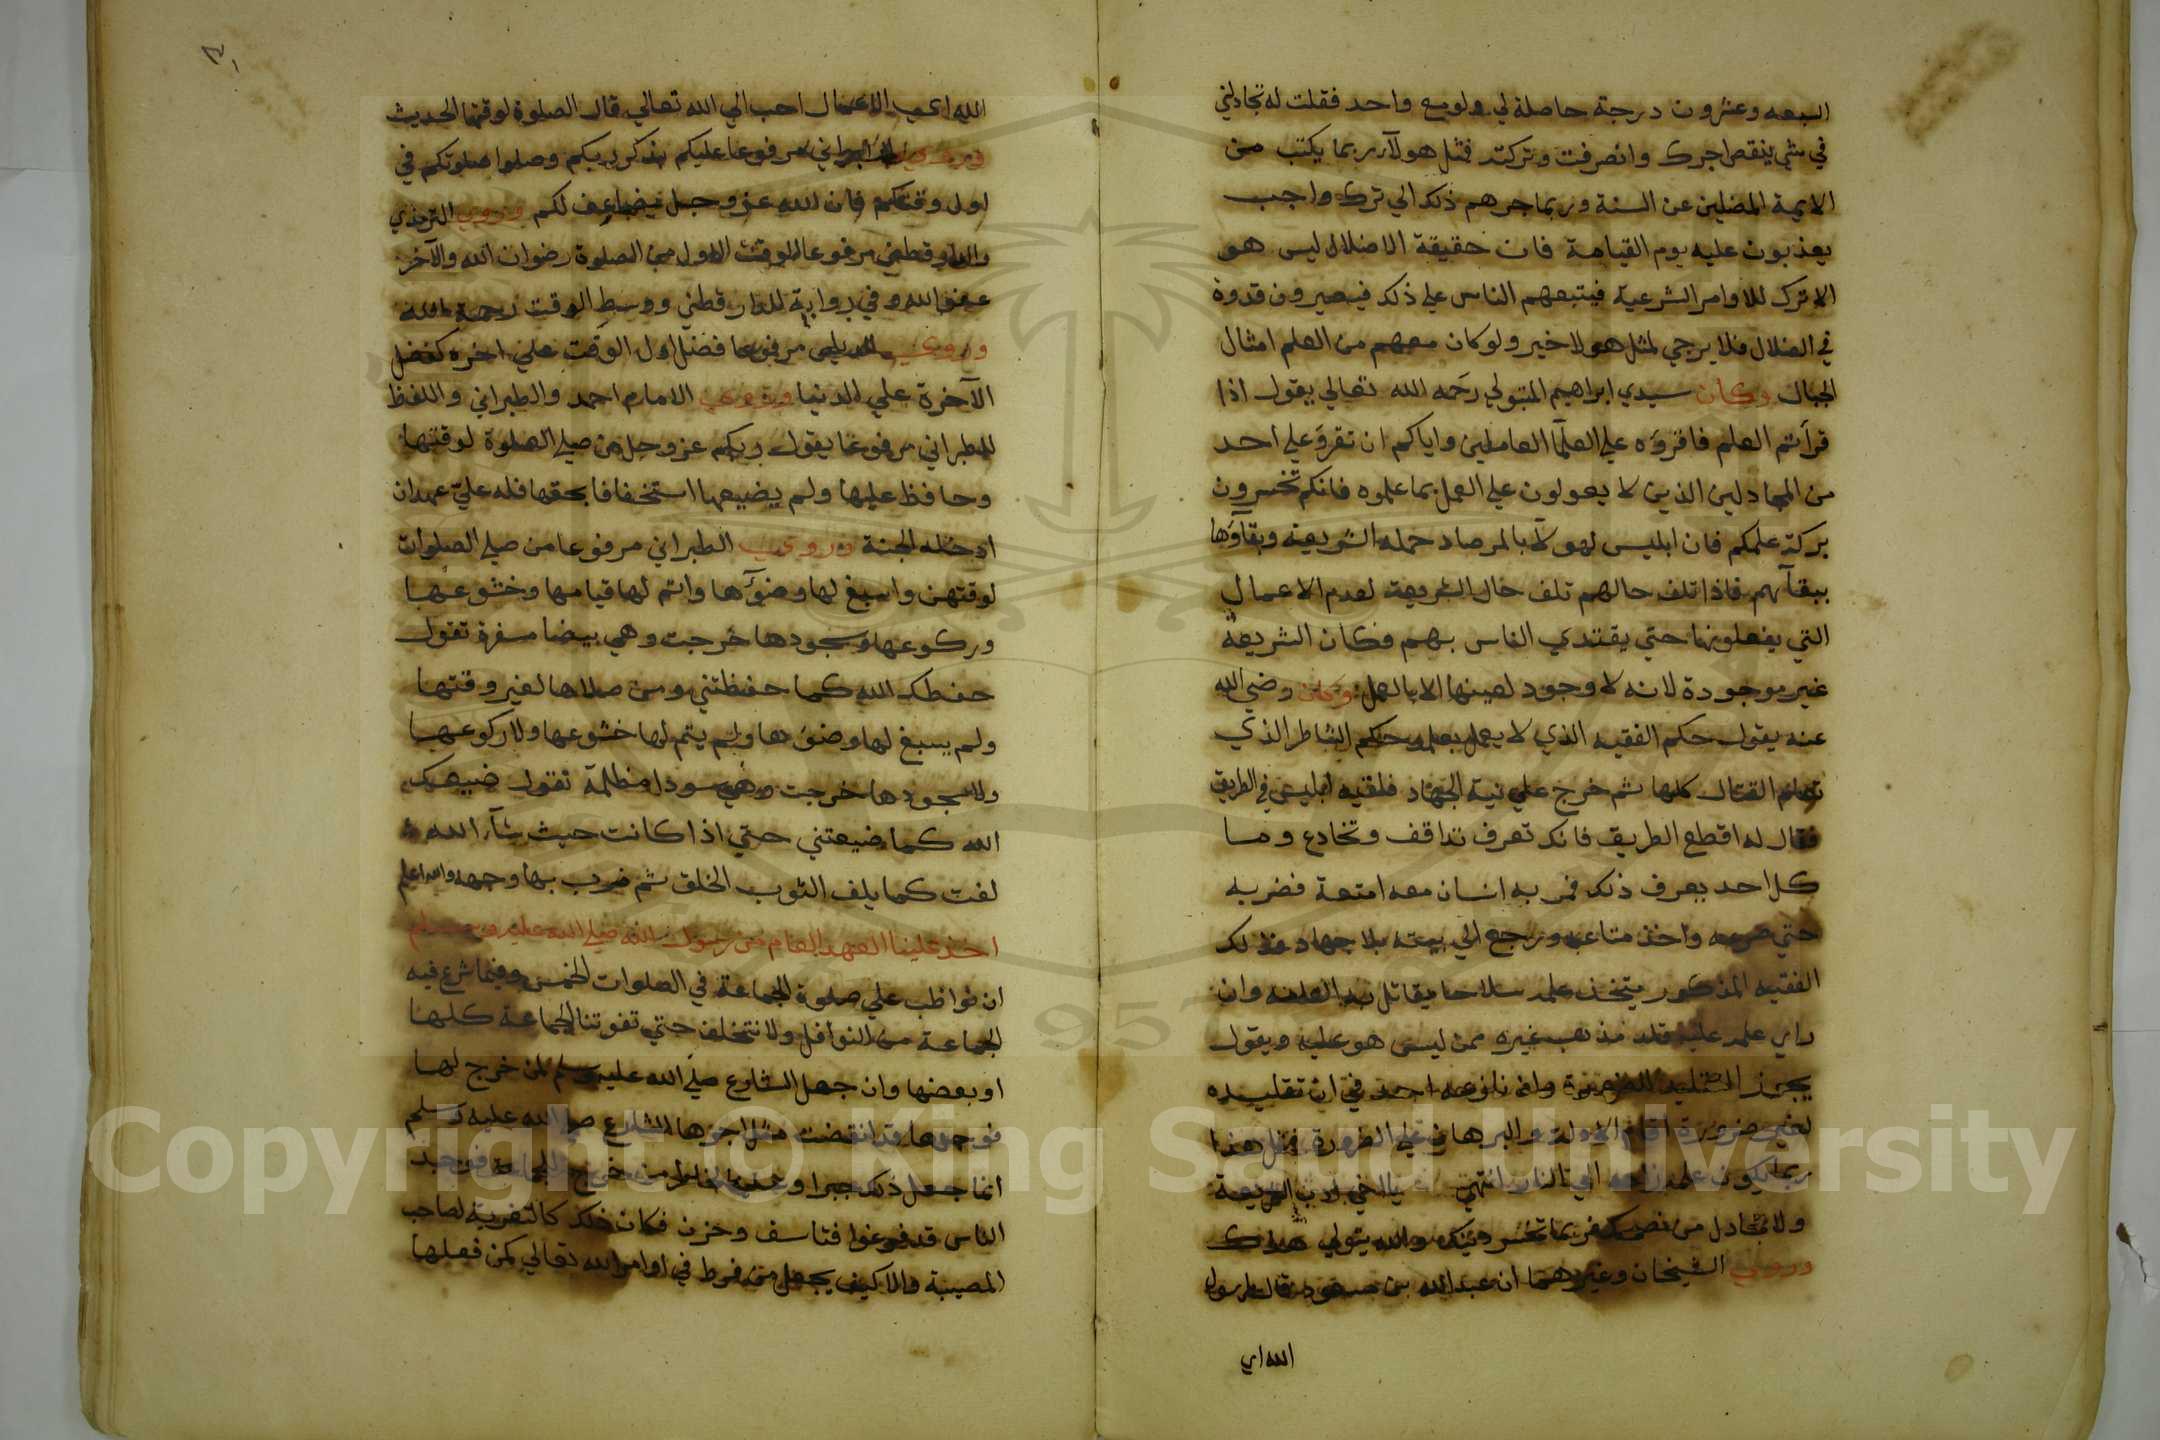 السبعه وعشرون درجة حاصلة لي ولو مع واحد فقلت له تجادلني
في شي ينقص اجرك وانصرفت وتركته فمثل هولآء ربما يكتب من
الايمة المضلين عن السنة وربما جرهم ذلك الي ترك واجب
يعذبون عليه يوم القيامة فان حقيقة الاضلال ليس هو
الا ترك للاوامر الشرعية فيتبعهم الناس علي ذلك فيصيرون قدوة
في الضلال فلا يرجي لمثل هولا خير ولو كان معهم من العلم امثال
الجبال وكان سيدي ابراهيم المتبولي رحمه الله تعالي يقول اذا
قرأتم العلم فاقروه علي العلمآ العاملين واياكم ان تقروَ علي احد
من المجادلين الذين لا يعولون علي العمل بما علموه فانكم تخسرون
بركة علمكم فان ابليس لهولآ بالمرصاد حملة الشريعة وبقآوها
ببقآئهم فاذا تلف حالهم تلف حال الشريعة لعدم الاعمال
التي يفعلونها حتي يقتدي الناس بهم فكان الشريعة
غير موجودة لانه لا وجود لعينها الا بالعمل وكان رضي الله
عنه يقول حكم الفقيه الذي لا يعمل بعلمه حكم الشاطر الذي
تعلم القتال كلها ثم خرج علي نية الجهاد فلقيه ابليس في الطريق
فقال له اقطع الطريق فانك تعرف تداقف وتخادع وما
كل احد يعرف ذلك فمر به انسان معه امتعة فضربه
حتي صرعه واخذ متاعه ورجع الي بيته بلا جهاد فذلك
الفقيه المذكور يتخذ علمه سلاحا يقاتل به العامة وان
راي علمه عليه قلد مذهب غيره ممن ليس هو عليه ويقول
يجوز التقليد للضرورة وان نازعه احد في ان تقليده
لغير ضرورة اقام الادلة والبراهين علي الضرورة فمثل هذا
ربما يكون علمه زاده الي النار انتهي يا اخي بادب الشريعة
ولا تجادل من نصحك فربما تخسر دينك والله يتولي هداك
وروي الشيخان وغيرهما ان عبد الله بن مسعود قال يا رسول
الله اي
الله اي الاعمال احب الي الله تعالي قال الصلوة لوقتها الحديث
وروي الطبراني مرفوعا عليكم بذكر ربكم وصلوا صلوتكم في
اول وقتكم فان الله عز وجل يضاعف لكم وروي الترمذي
والدارقطني مرفوعا الوقت الاول من الصلوة رضوان الله والآخر
عفو الله وفي رواية للدارقطني ووسط الوقت رحمة الله
وروي الديلمي مرفوعا فضل اول الوقت علي اخره كفضل
الآخرة علي الدنيا وروي الامام احمد والطبراني واللفظ
للطبراني مرفوعا يقول ربكم عز وجل من صلي الصلوة لوقتها
وحافظ عليها ولم يضيعها استخفافا بحقها فله عليّ عهد ان
ادخله الجنة وروي الطبراني مرفوعا من صلي الصلوات
لوقتهن واسبغ لها وضوَٓها واتم لها قيامها وخشوعها
وركوعها وسجودها خرجت وهي بيضا مسفرة تقول
حفظك الله كما حفظتني ومن صلاها لغير وقتها
ولم يسبغ لها وضوَها ولم يتم لها خشوعها ولا ركوعها
ولا سجودها خرجت وهي سودا مظلمة تقول ضيعك
الله كما ضيعتني حتي اذا كانت حيث شآء الله
لفت كما يلف الثوب الخلق ثم ضرب بها وجهه والله اعلم
اخذ علينا العهد العام من رسول الله صلي الله عليه وسلم
ان نواظب علي صلوة الجماعة في الصلوات الخمس وفيما شرع فيه
الجماعة من النوافل ولا نتخلف حتي تفوتنا الجماعة كلها
او بعضها وان جعل الشارع صلي الله عليه وسلم لمن خرج لها
فوجدها قد انقضت مثل اجرها الشارع صلي الله عليه وسلم
انما جعل ذلك جبرا وخرج للجماعة فوجد
الناس قد فرغوا فتاسف وحزن فكان ذلك كالتعزية لصاحب
المصيبة والا كيف يجعل من فرط في اوامر الله تعالي كمن فعلها